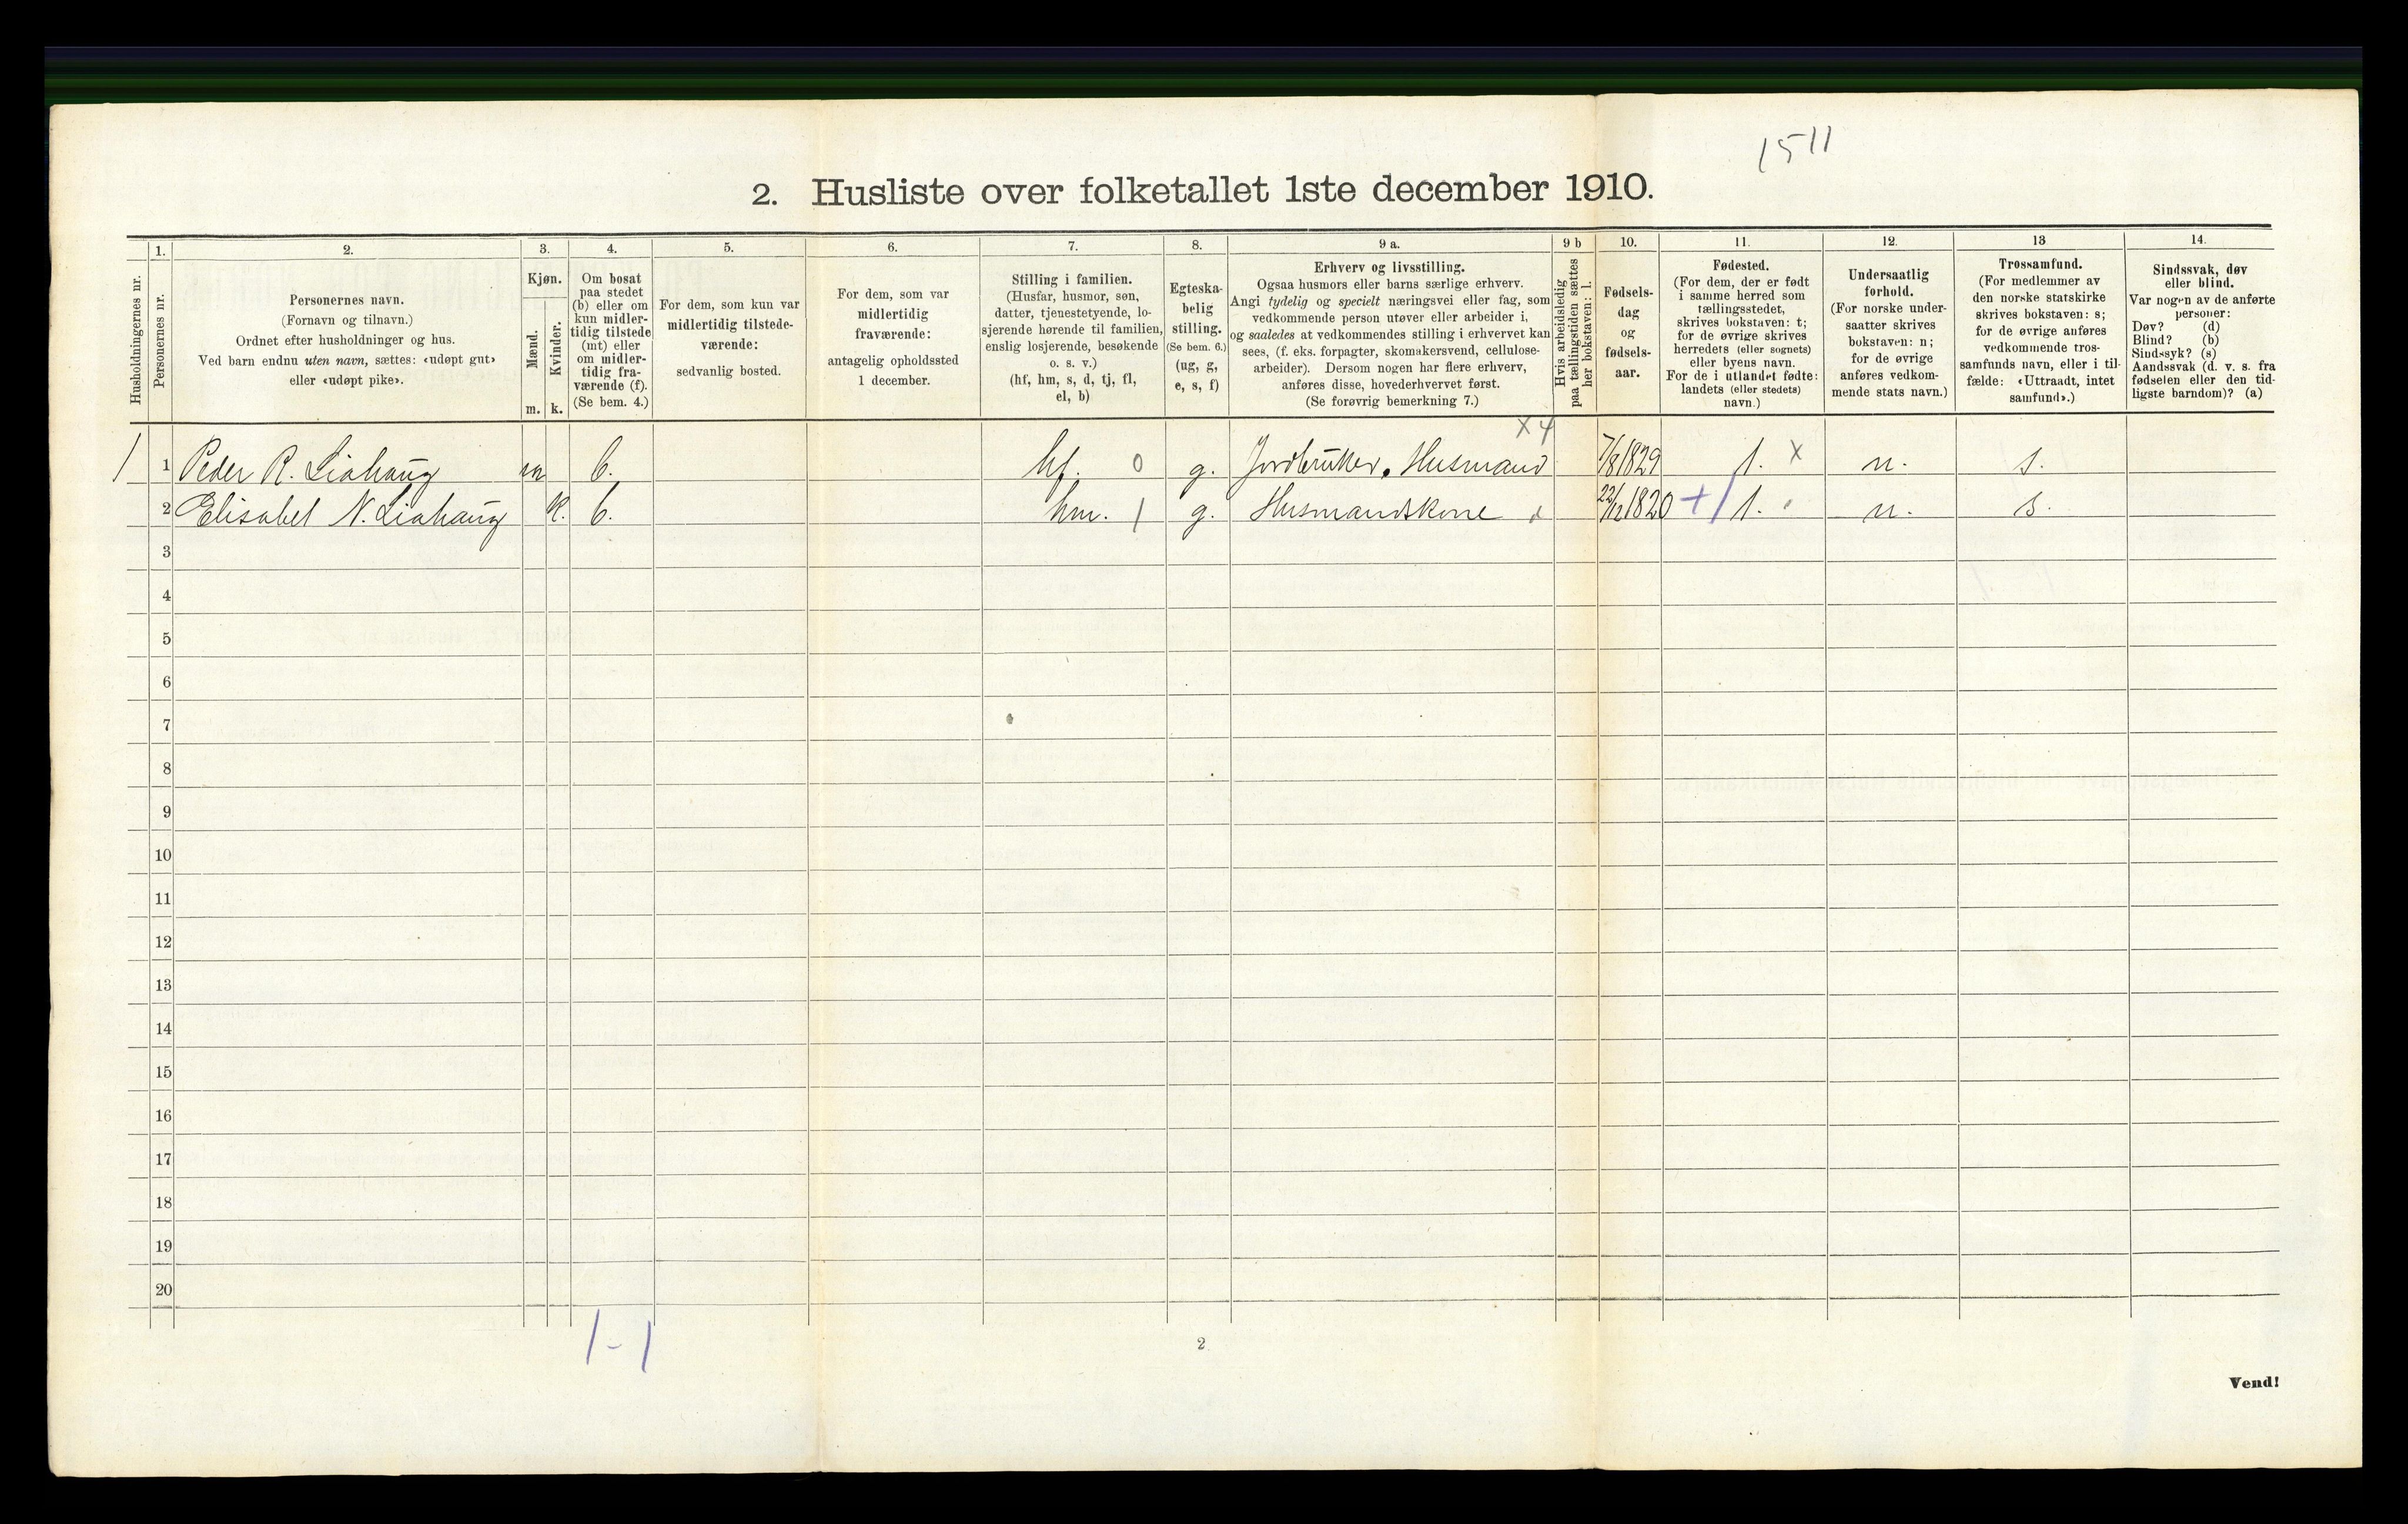 1511
2. Husliste over folketallet 1ste december 1910.
Husholdningernes nr.
1.
Personernes nr.
2.
Personernes navn.
(Fornavn og tilnavn.)
Ordnet efter husholdninger og hus.
Ved barn endnu uten navn, sættes: «udøpt gut»
eller «udøpt pike».
3.
Kjøn.
Mænd.
m.
Kvinder.
k.
4.
Om bosat
paa stedet
(b) eller om
kun midler-
tidig tilstede
(mt) eller
om midler-
tidig fra-
værende (f).
(Se bem. 4.)
5.
For dem, som kun var
midlertidig tilstede-
værende:
sedvanlig bosted.
6.
For dem, som var
midlertidig
fraværende:
antagelig opholdssted
1 december.
7.
Stilling i familien.
(Husfar, husmor, søn,
datter, tjenestetyende, lo-
sjerende hørende til familien,
enslig losjerende, besøkende
o. s. v.)
(hf, hm, s, d, tj, fl,
el, b)
8.
Egteska-
belig
stilling.
(Se bem. 6.)
(ug, g,
e, s, f)
9 a.
Erhverv og livsstilling.
Ogsaa husmors eller barns særlige erhverv.
Angi tydelig og specielt næringsvei eller fag, som
vedkommende person utøver eller arbeider i,
og saaledes at vedkommendes stilling i erhvervet kan
sees, (f. eks. forpagter, skomakersvend, cellulose-
arbeider). Dersom nogen har flere erhverv,
anføres disse, hovederhvervet først.
(Se forøvrig bemerkning 7.)
9 b
Hvis arbeidsledig
paa tællingstiden sættes
her bokstaven: l.
10.
Fødsels-
dag
og
fødsels-
aar.
11.
Fødested.
(For dem, der er født
i samme herred som
tællingsstedet,
skrives bokstaven: t;
for de øvrige skrives
herredets (eller sognets)
eller byens navn.
For de i utlandet fødte:
landets (eller stedets)
navn.)
12.
Undersaatlig
forhold.
(For norske under-
saatter skrives
bokstaven: n;
for de øvrige
anføres vedkom-
mende stats navn.)
13
Trossamfund.
(For medlemmer av
den norske statskirke
skrives bokstaven: s;
for de øvrige anføres
vedkommende tros-
samfunds navn, eller i til-
fælde: «Uttraadt, intet
samfund».)
14.
Sindssvak, døv
eller blind.
Var nogen av de anførte
personer:
Døv? (d)
Blind? (b)
Sindssyk? (s)
Aandssvak (d. v. s. fra
fødselen eller den tid-
ligste barndom)? (a)
x 4
1 1 Peder R. Liahaug m b. hf. 0 g. Jordbruker. Husmand 7/8 1829 t. x n. s.
2 Elisabet N. Liahaug k. b. hm. 1 g. Husmandskone 22/12 1820 + / t. n. s.
3
4
5
6
7
8
9
10
11
12
13
14
15
16
17
18
19
20
1 - 1
2
Vend!